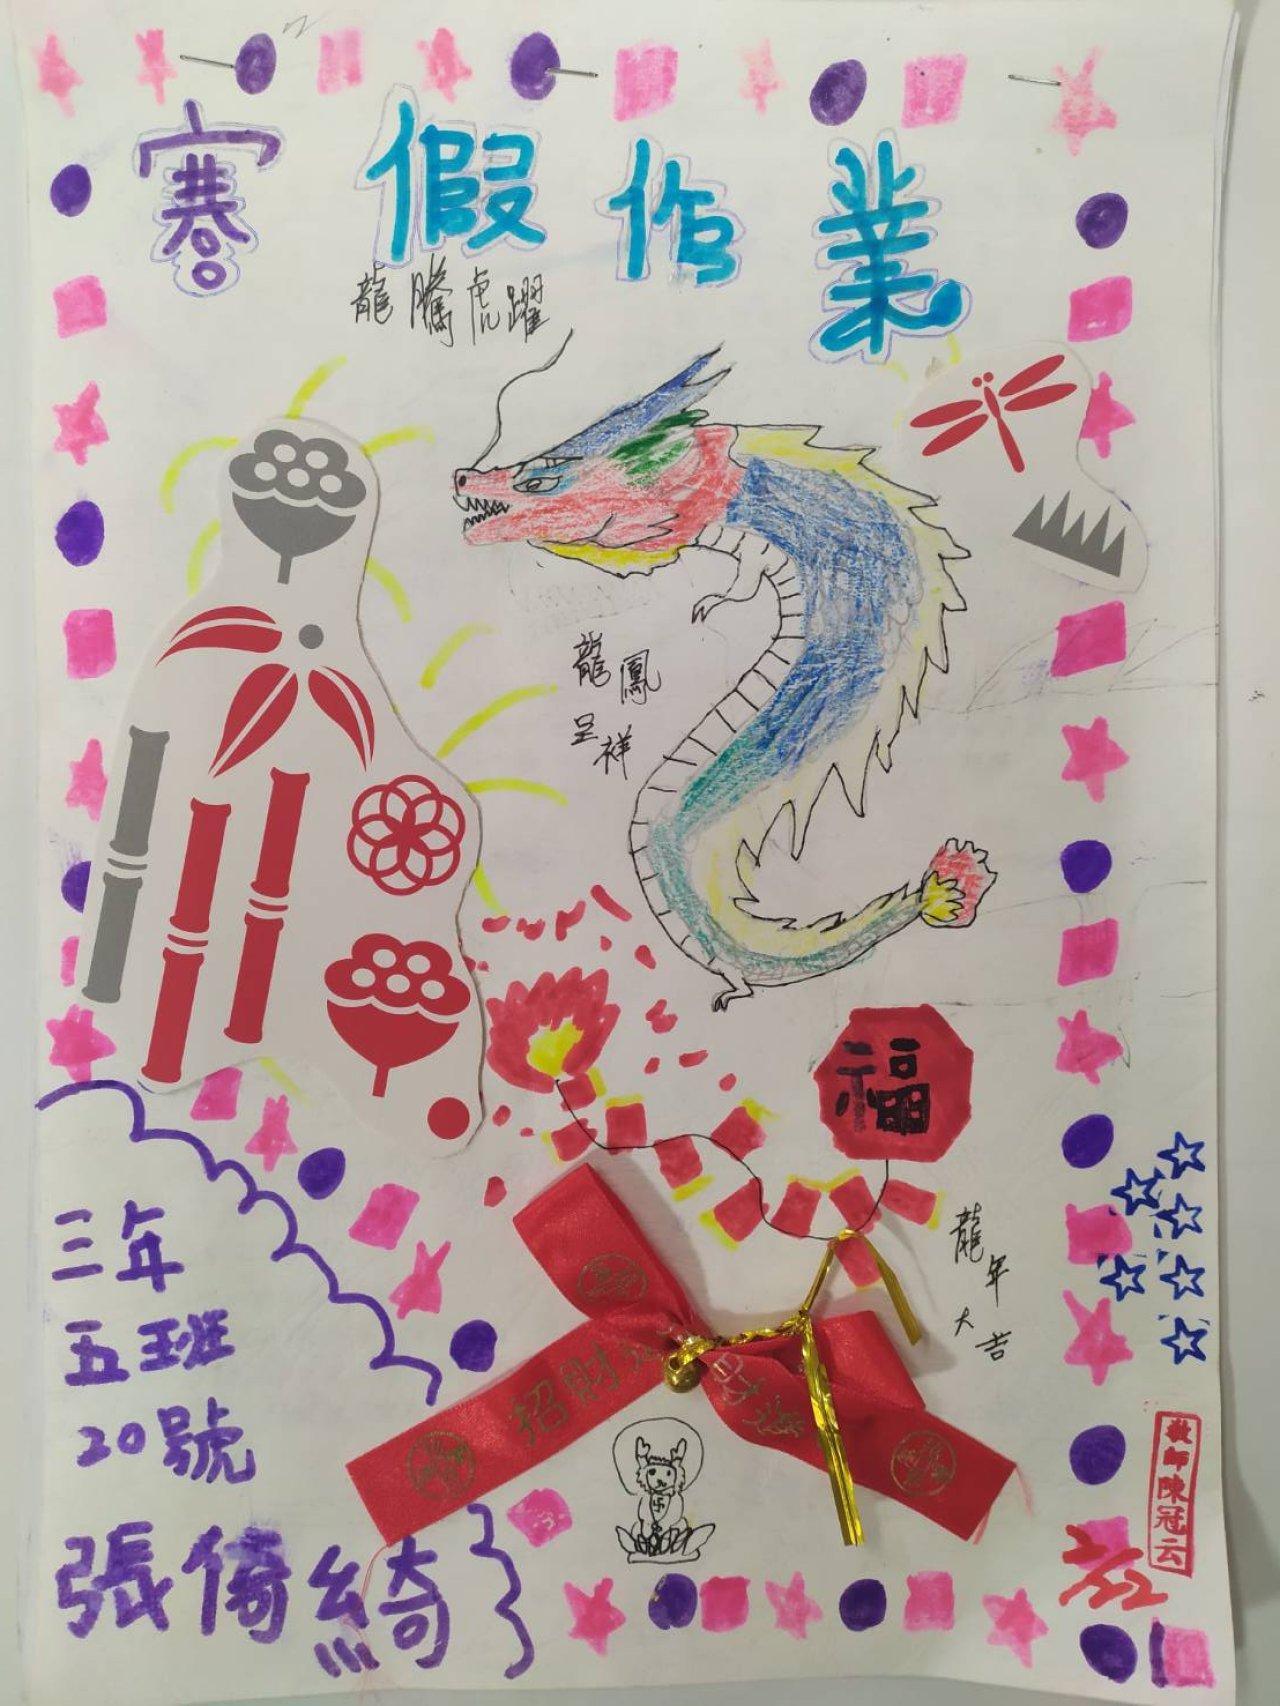 寒假作業
龍騰虎躍
龍鳳
呈祥
福
龍年
大吉
招財進
三年
五班
20號
張倚綺
教師陳冠云
2/22